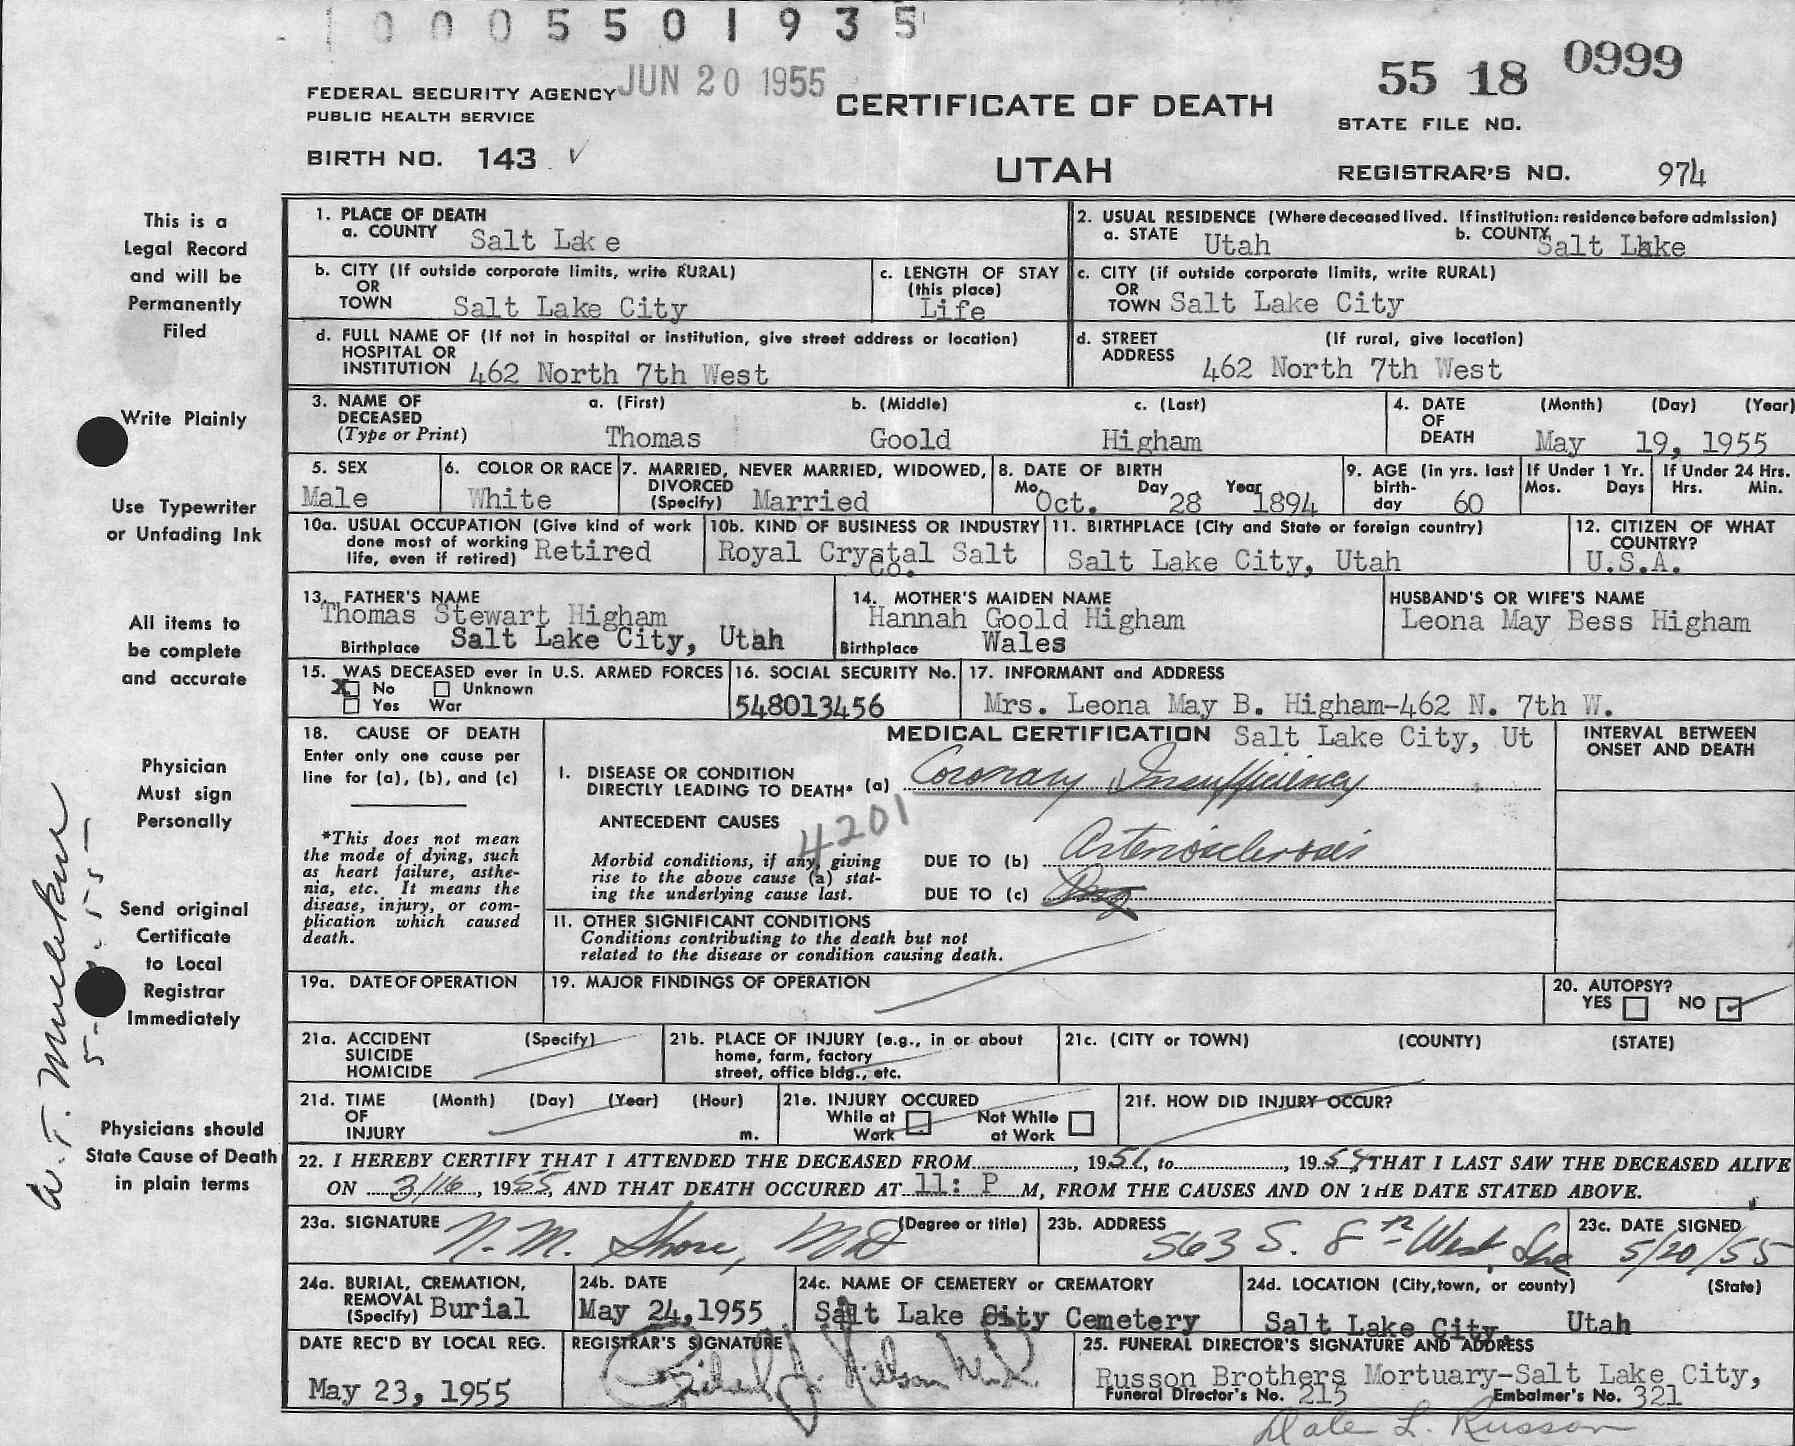 10005501935
JUN 20 1955
55 18 0999
FEDERAL SECURITY AGENCY
PUBLIC HEALTH SERVICE
CERTIFICATE OF DEATH
STATE FILE NO.
BIRTH NO. 143 ✓
UTAH
REGISTRAR'S NO. 974
This is a
Legal Record
and will be
Permanently
Filed
Write Plainly
Use Typewriter
or Unfading Ink
All items to
be complete
and accurate
Physician
Must sign
Personally
Send original
Certificate
to Local
Registrar
Immediately
Physicians should
State Cause of Death
in plain terms
1. PLACE OF DEATH
a. COUNTY Salt Lake
2. USUAL RESIDENCE (Where deceased lived. If institution: residence before admission)
a. STATE Utah b. COUNTY Salt Lake
b. CITY (If outside corporate limits, write RURAL)
OR
TOWN Salt Lake City
c. LENGTH OF STAY
(this place)
Life
c. CITY (if outside corporate limits, write RURAL)
OR
TOWN Salt Lake City
d. FULL NAME OF (If not in hospital or institution, give street address or location)
HOSPITAL OR
INSTITUTION 462 North 7th West
d. STREET (If rural, give location)
ADDRESS 462 North 7th West
3. NAME OF a. (First) b. (Middle) c. (Last)
DECEASED
(Type or Print) Thomas Goold Higham
4. DATE (Month) (Day) (Year)
OF
DEATH May 19, 1955
5. SEX
Male
6. COLOR OR RACE
White
7. MARRIED, NEVER MARRIED, WIDOWED,
DIVORCED
(Specify) Married
8. DATE OF BIRTH
Mo. Day Year
Oct. 28 1894
9. AGE (in yrs. last
birth-
day 60
If Under 1 Yr.
Mos. Days
If Under 24 Hrs.
Hrs. Min.
10a. USUAL OCCUPATION (Give kind of work
done most of working
life, even if retired) Retired
10b. KIND OF BUSINESS OR INDUSTRY
Royal Crystal Salt
Co.
11. BIRTHPLACE (City and State or foreign country)
Salt Lake City, Utah
12. CITIZEN OF WHAT
COUNTRY?
U.S.A.
13. FATHER'S NAME
Thomas Stewart Higham
Birthplace Salt Lake City, Utah
14. MOTHER'S MAIDEN NAME
Hannah Goold Higham
Birthplace Wales
HUSBAND'S OR WIFE'S NAME
Leona May Bess Higham
15. WAS DECEASED ever in U.S. ARMED FORCES
X No Unknown
Yes War
16. SOCIAL SECURITY No.
548013456
17. INFORMANT and ADDRESS
Mrs. Leona May B. Higham-462 N. 7th W.
Salt Lake City, Ut
18. CAUSE OF DEATH
Enter only one cause per
line for (a), (b), and (c)
*This does not mean
the mode of dying, such
as heart failure, asthe-
nia, etc. It means the
disease, injury, or com-
plication which caused
death.
MEDICAL CERTIFICATION
INTERVAL BETWEEN
ONSET AND DEATH
I. DISEASE OR CONDITION
DIRECTLY LEADING TO DEATH* (a) Coronary Insufficiency
ANTECEDENT CAUSES
4201
Morbid conditions, if any, giving
rise to the above cause (a) stat-
ing the underlying cause last.
DUE TO (b) Arteriosclerosis
DUE TO (c)
II. OTHER SIGNIFICANT CONDITIONS
Conditions contributing to the death but not
related to the disease or condition causing death.
19a. DATE OF OPERATION
19. MAJOR FINDINGS OF OPERATION
20. AUTOPSY?
YES NO ✓
21a. ACCIDENT (Specify)
SUICIDE
HOMICIDE
21b. PLACE OF INJURY (e.g., in or about
home, farm, factory
street, office bldg., etc.
21c. (CITY or TOWN) (COUNTY) (STATE)
21d. TIME (Month) (Day) (Year) (Hour)
OF
INJURY m.
21e. INJURY OCCURED
While at Not While
Work at Work
21f. HOW DID INJURY OCCUR?
22. I HEREBY CERTIFY THAT I ATTENDED THE DECEASED FROM , 1951, to , 19 THAT I LAST SAW THE DECEASED ALIVE
ON 3/16, 1955, AND THAT DEATH OCCURED AT 11: P M, FROM THE CAUSES AND ON THE DATE STATED ABOVE.
23a. SIGNATURE N. M. Shore, MD (Degree or title)
23b. ADDRESS 563 S. 8th West
23c. DATE SIGNED
5/20/55
24a. BURIAL, CREMATION,
REMOVAL
(Specify) Burial
24b. DATE
May 24,1955
24c. NAME OF CEMETERY or CREMATORY
Salt Lake City Cemetery
24d. LOCATION (City, town, or county) (State)
Salt Lake City, Utah
DATE REC'D BY LOCAL REG.
May 23, 1955
REGISTRAR'S SIGNATURE
25. FUNERAL DIRECTOR'S SIGNATURE AND ADDRESS
Russon Brothers Mortuary-Salt Lake City,
Funeral Director's No. 215 Embalmer's No. 321
Dale L. Russon